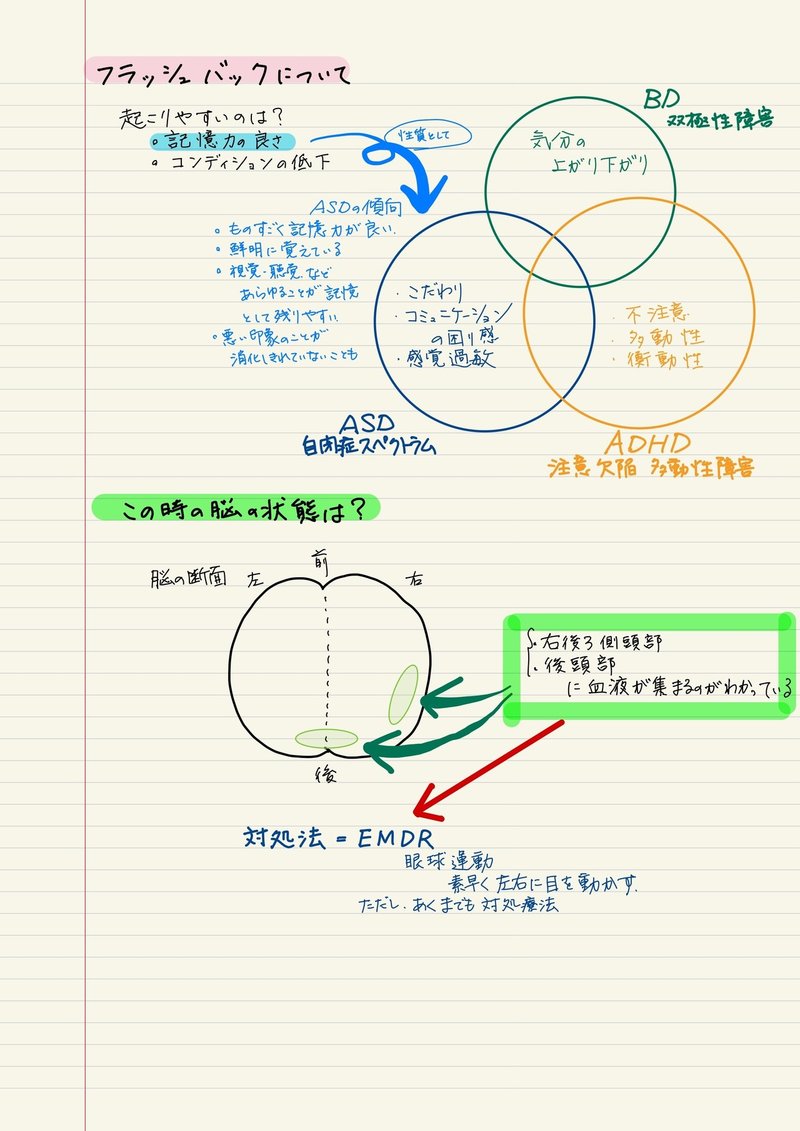 フラッシュバックについて
起こりやすいのは？
・記憶力の良さ
・コンディションの低下
性質として
ASDの傾向
・ものすごく記憶力が良い.
・鮮明に覚えている
・視覚・聴覚.など
あらゆることが記憶
として残りやすい.
・悪い印象のことが
消化しきれていないことも
BD
双極性障害
気分の
上がり下がり
・こだわり
・コミュニケーション
の困り感
・感覚過敏
・不注意
・多動性
・衝動性
ASD
自閉症スペクトラム
ADHD
注意欠陥 多動性障害
この時の脳の状態は？
脳の断面
左
前
右
後
・右後ろ側頭部
・後頭部
に血液が集まるのがわかっている
対処法 = EMDR
眼球運動
素早く左右に目を動かす.
ただし.あくまでも対処療法